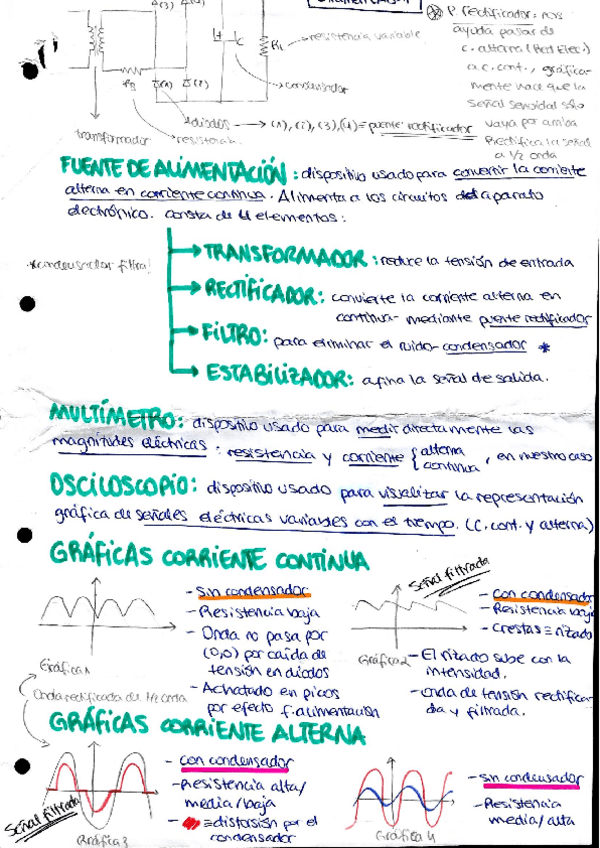 P. rectificador: nos
ayuda pasar de
c. alterna (Red Elec.)
a c.cont., gráfica-
mente hace que la
señal senoidal sólo
vaya por arriba
Rectifica la señal
a 1/2 onda
(3)
C
RL → resistencia variable
condensador
(1) (2)
diodos → (1), (2), (3), (4) = puente rectificador
transformador
resistencia
FUENTE DE ALIMENTACIÓN: dispositivo usado para convertir la corriente
alterna en corriente continua. Alimenta a los circuitos del aparato
electrónico. consta de 4 elementos:
→ TRANSFORMADOR: reduce la tensión de entrada
*condensador filtra!
→ RECTIFICADOR: convierte la corriente alterna en
continua- mediante puente rectificador
→ FILTRO: para eliminar el ruido- condensador *
→ ESTABILIZADOR: afina la señal de salida.
MULTÍMETRO: dispositivo usado para medir directamente las
magnitudes eléctricas: resistencia y corriente { alterna
continua, en nuestro caso
OSCILOSCOPIO: dispositivo usado para visualizar la representación
gráfica de señales eléctricas variables con el tiempo. (C. cont. y alterna)
GRÁFICAS CORRIENTE CONTINUA
- sin condensador
- Resistencia baja
- Onda no pasa por
(0,0) por caída de
tensión en diodos
- Achatado en picos
por efecto f. alimentación
Gráfica 1
Señal filtrada
- con condensador
- Resistencia baja
- Crestas ≡ rizado
Gráfica 2
- El rizado sube con la
intensidad.
- onda de tensión rectifica-
da y filtrada.
Onda rectificada de 1/2 onda
GRÁFICAS CORRIENTE ALTERNA
- con condensador
- Resistencia alta/
media/baja
- ≡ distorsión por el
condensador
Señal filtrada
Gráfica 3
- sin condensador
- Resistencia
media/alta
Gráfica 4